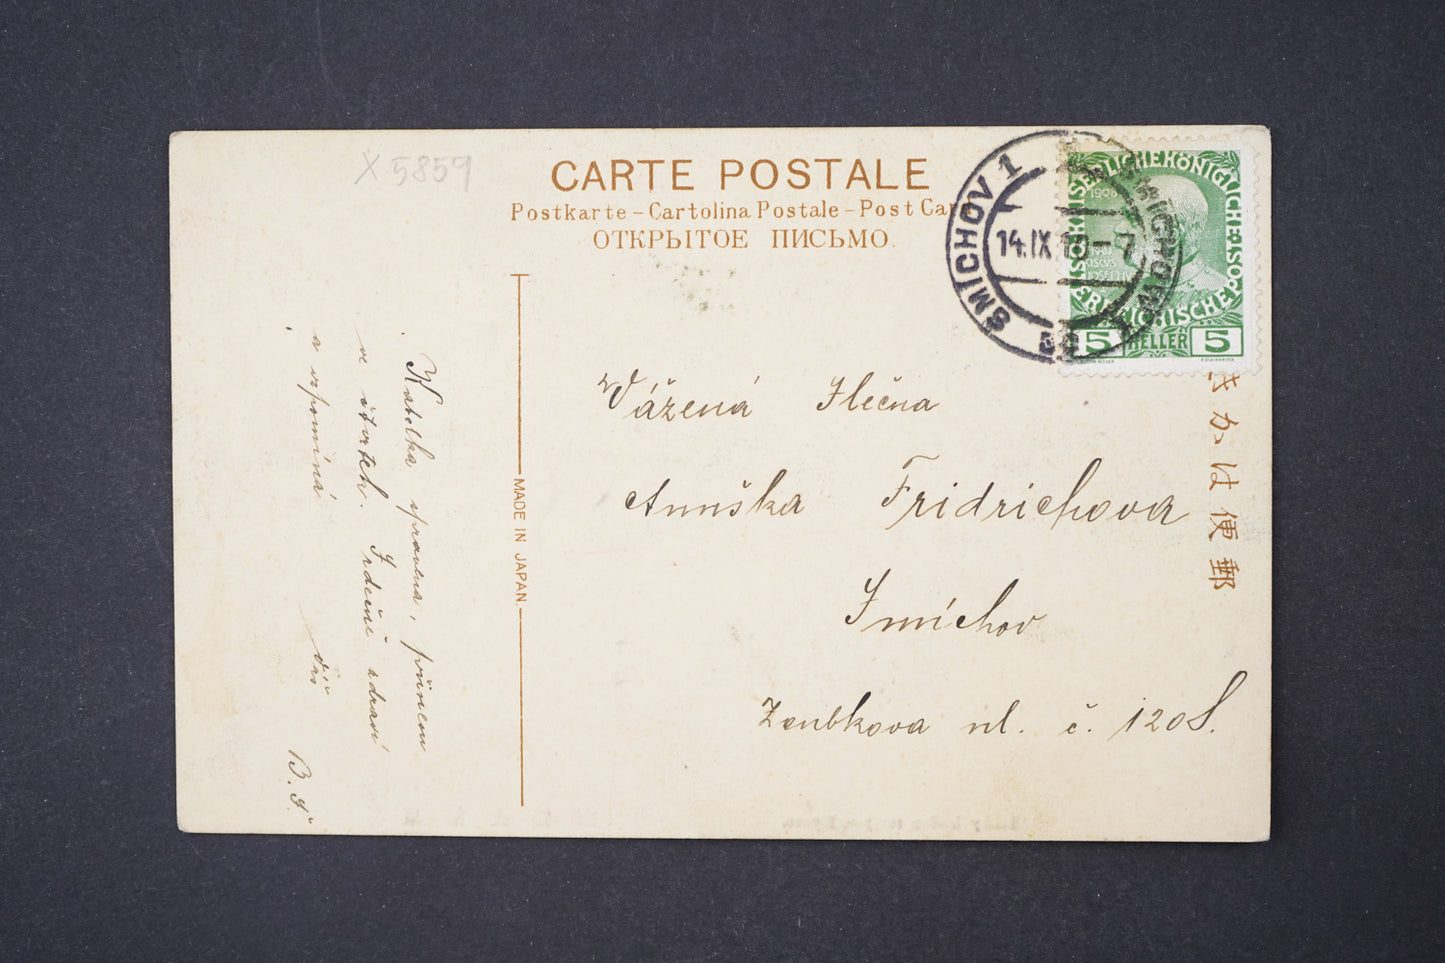 X 5859
CARTE POSTALE
Postkarte - Cartolina Postale - Post Car
ОТКРЫТОЕ ПИСЬМО.
SMICHOV 1
SMICHOW 1
14.IX
1908
KAISERLICHE KÖNIGLICHE
ÖSTERREICHISCHE POST
5 HELLER 5
郵便はがき
MADE IN JAPAN.
Vážená Slečna
Anuška Fridrichova
Smíchov
Zenbkova ul. č. 1208.
Kabelka spravena, přinesu
ve útorek. Srdečně zdraví
a vzpomíná
Váš
B. S.